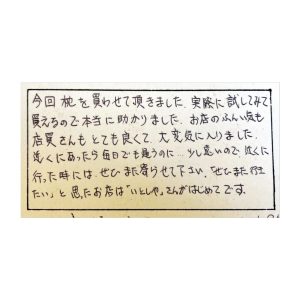 今回枕を買わせて頂きました。実際に試してみて
買えるので本当に助かりました。お店のふんい気も
店員さんもとても良くて、大変気に入りました。
近くにあったら毎日でも通うのに…少し遠いので、近くに
行った時には、ぜひまた寄らせて下さい。「ぜひまた行き
たい」と思ったお店は「いとしや」さんがはじめてです。